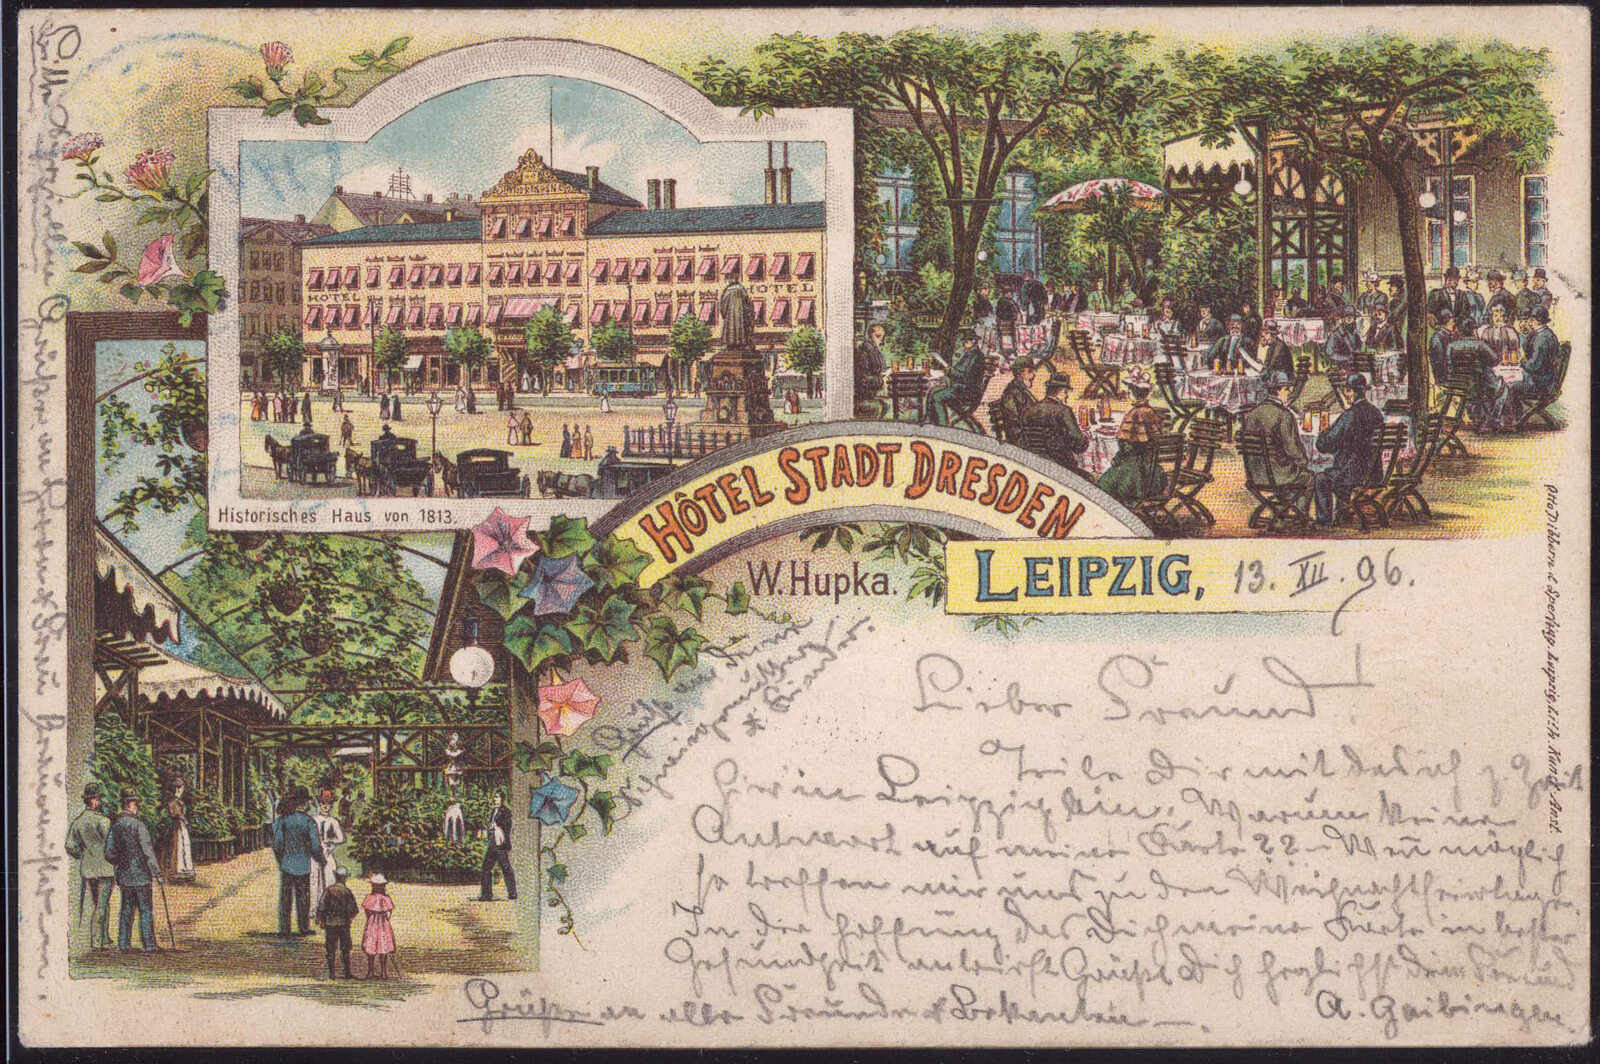 Historisches Haus von 1813.
HOTEL
HOTEL
HÔTEL STADT DRESDEN
W. Hupka.
LEIPZIG, 13. XII. 96.
Lieber Freund!
Teile Dir mit das ich z. Zeit
hier in Leipzig bin. Warum keine
Antwort auf meine Karte?? – Wen̄ möglich
so treffen wir uns zu den Weihnachtsfeiertagen.
In der Hoffnung das Dich meine Karte in bester
Gesundheit antrifft Grüßt Dich herzlichst dein Freund
A. Gaibinger.
Grüße an alle Freunde & Bekannten —.
Grüße an
Bitte speziellen Gruß an Herrn & Frau
Otto Dibbern & Sperrhop, Leipzig, Lith. Kunst-Anst.